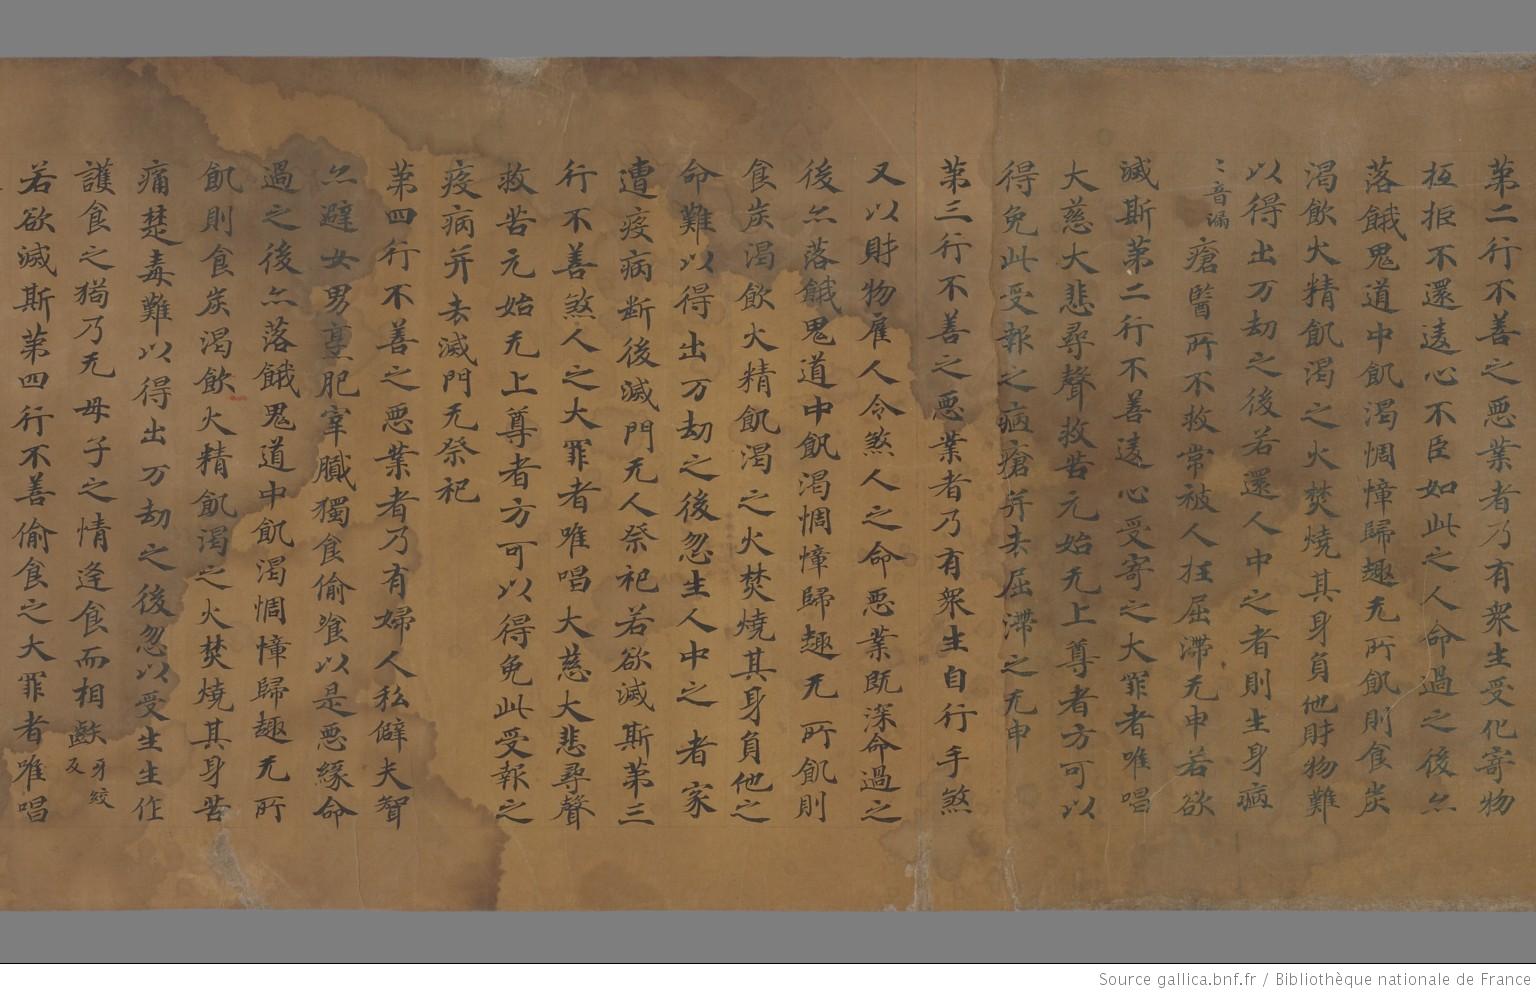 苐二行不善之悪業者乃有衆生受化寄物
拒不還逺心不臣如此之人命過之後亦
落餓鬼道中飢渴惆悵歸趣无所飢則食炭
渴飲火精飢渴之火焚燒其身負他財物難
以得出万劫之後若還人中之者則生身病
〻音漏
瘡醫所不救常被人抂屈滯无申若欲
滅斯苐二行不善逺心受寄之大罪者唯唱
大慈大悲尋聲救苦元始无上尊者方可以
得免此受報之病瘡并去屈滯之无申
苐三行不善之悪業者乃有衆生自行手煞
又以財物雇人令煞人之命悪業既深命過之
後亦落餓鬼道中飢渴惆悵歸趣无所飢則
食炭渴飲火精飢渴之火焚燒其身負他之
命難以得出万劫之後忽生人中之者家
遭疫病断後滅門无人祭祀若欲滅斯苐三
行不善煞人之大罪者唯唱大慈大悲尋聲
救苦元始无上尊者方可以得免此受報之
疫病并去滅門无祭祀
苐四行不善之悪業者乃有婦人私僻夫聟
亦避女男烹肥宰臓獨食偷飡以是悪緣命
過之後亦落餓鬼道中飢渴惆悵歸趣无所
飢則食炭渴飲火精飢渴之火焚燒其身苦
痛楚毒難以得出万劫之後忽以受生生作
護食之㺃乃无母子之情逢食而相齩
牙絞
反
若欲滅斯苐四行不善偷食之大罪者唯唱
Source gallica.bnf.fr / Bibliothèque nationale de France